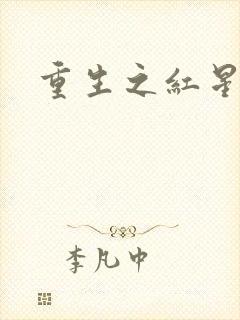 重生之紅星
李凡中